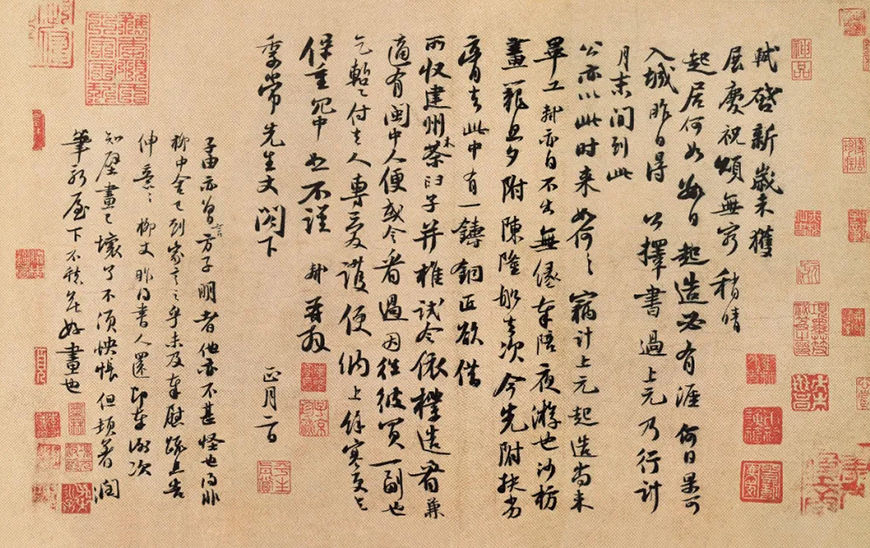 軾啓新歲未獲
展慶祝頌無窮稍晴
起居何如數日起造必有涯何日果可
入城昨日得公擇書過上元乃行計
月末間到此
公亦以此時來如何々竊計上元起造尚未
畢工軾亦自不出無緣奉陪夜游也沙枋
畫籠旦夕附陳隆船去次今先附扶劣
膏去此中有一鑄銅匠欲借
所收建州木茶臼子并椎試令依樣造看兼
適有閩中人便或令看過因往彼買一副也
乞暫付去人專愛護便納上餘寒更乞
保重冗中恕不謹軾再拜
季常先生丈閣下正月二日
子由亦曾言方子明者他亦不甚怪也得非
柳中舍已到家言之乎未及奉慰疏且告
伸意々柳丈昨得書人還即奉謝次
知壁畫已壞了不須怏悵但頓著潤
筆新屋下不愁無好畫也